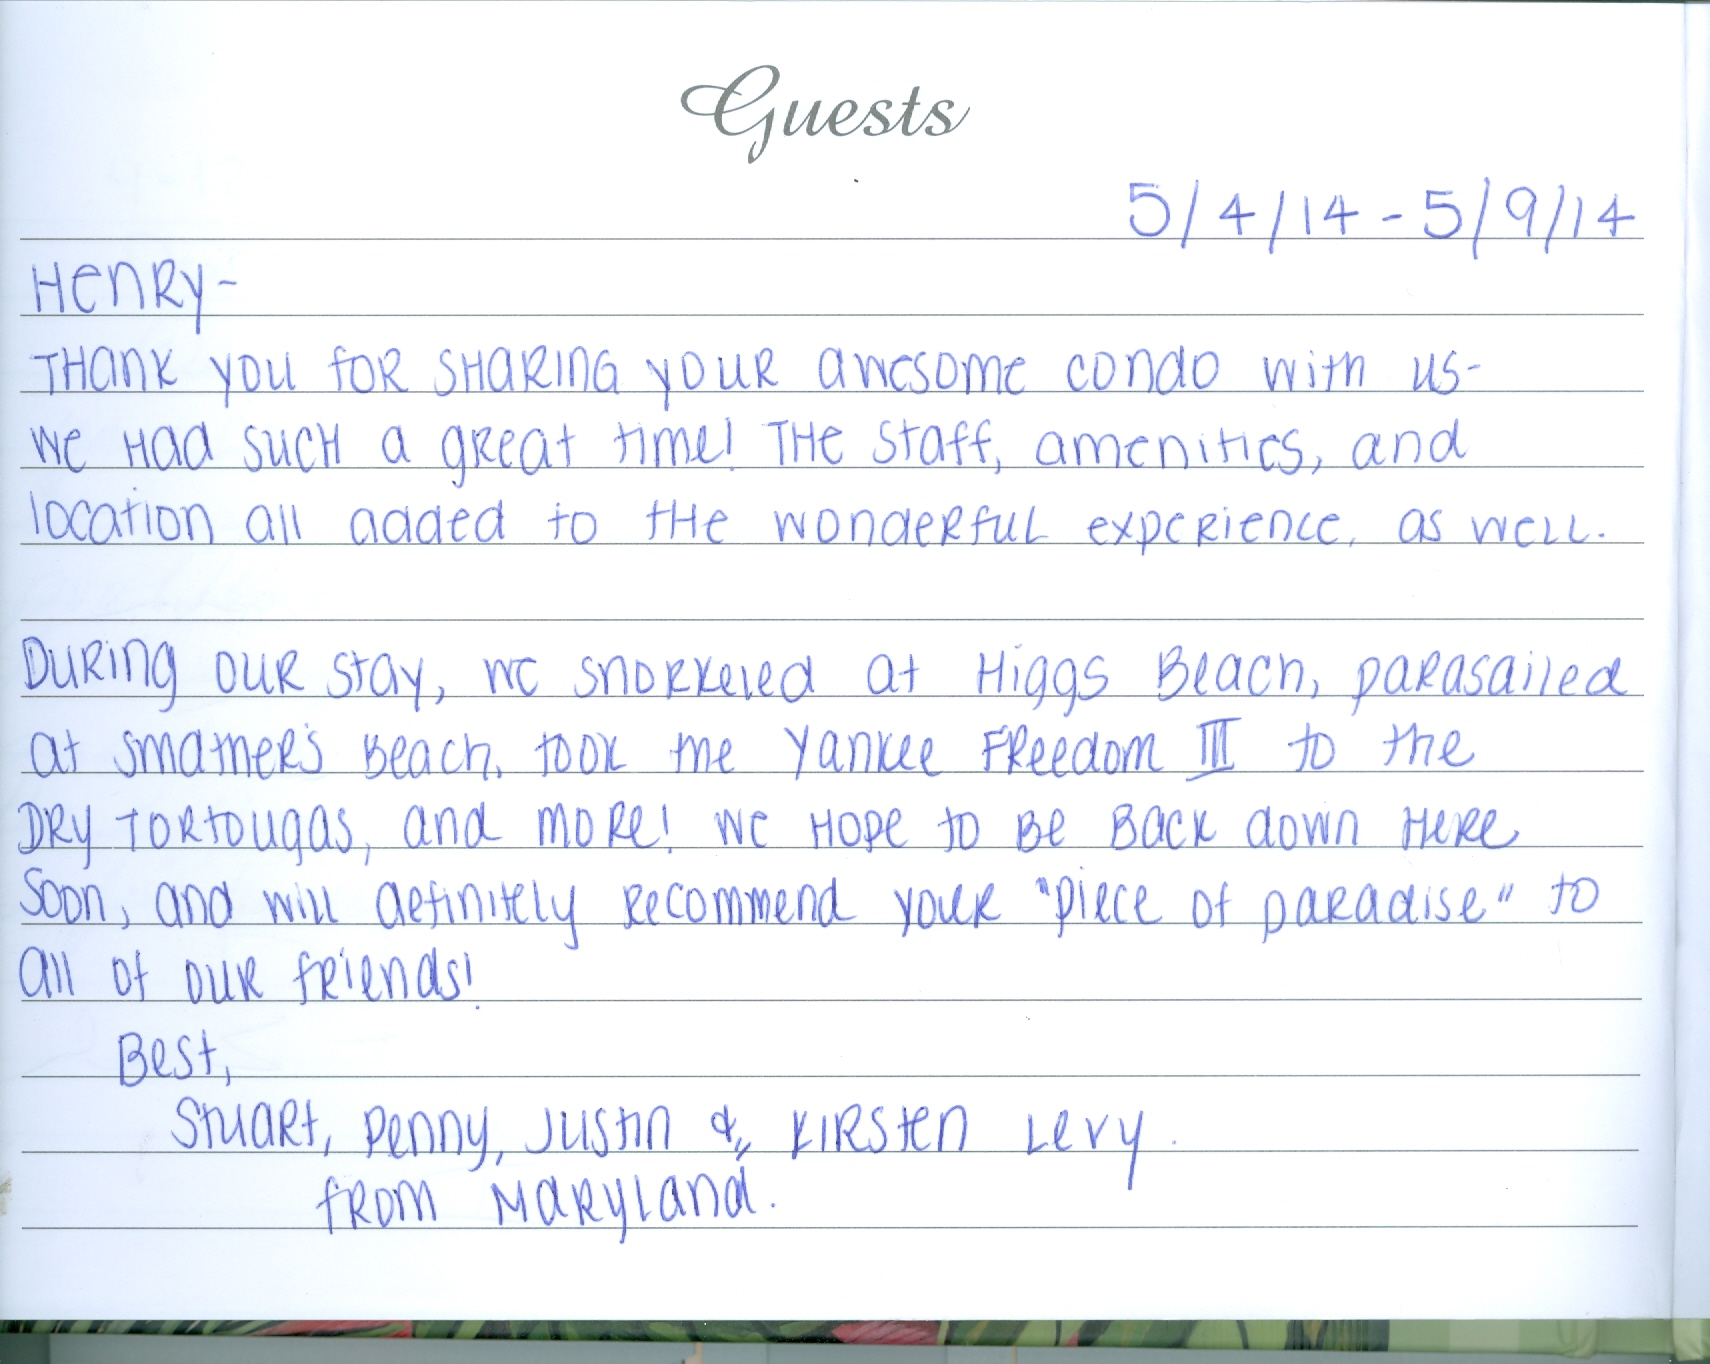 Guests
5/4/14 - 5/9/14
Henry-
Thank you for sharing your awesome condo with us-
we had such a great time! The staff, amenities, and
location all added to the wonderful experience, as well.
During our stay, we snorkeled at Higgs Beach, parasailed
at Smather's Beach, took the Yankee Freedom III to the
Dry Tortougas, and more! We hope to be back down here
soon, and will definitely recommend your "piece of paradise" to
all of our friends!
Best,
Stuart, Penny, Justin & Kirsten Levy
from Maryland.